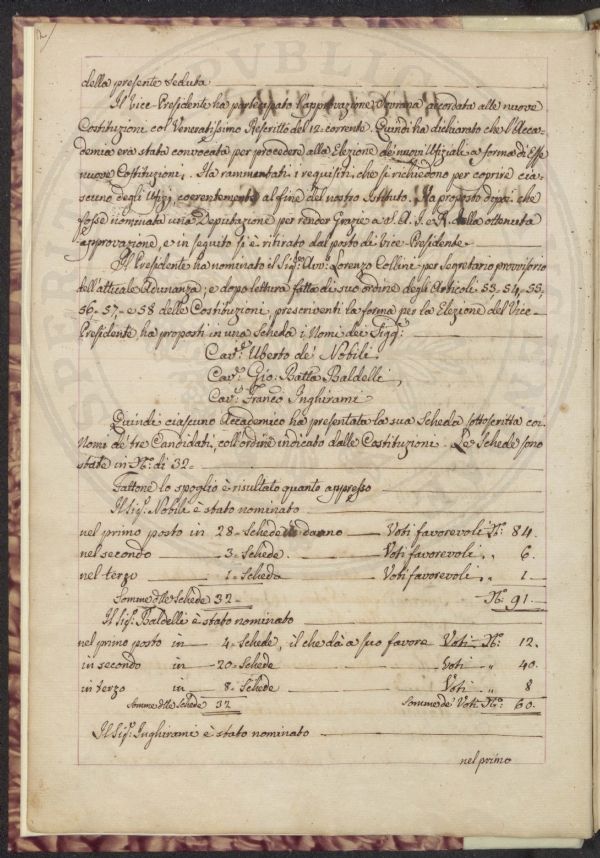 2/
della presente seduta
Il Vice-Presidente ha partecipato l'approvazione Sovrana accordata alle nuove
Costituzioni col Veneratissimo Rescritto del 12 corrente. Quindi ha dichiarato che l'Acca-
demia era stata convocata per procedere alla Elezione de' nuovi Ufiziali a forma di esse
nuove Costituzioni. Ha rammentati i requisiti, che si richiedono per coprire cia-
scuno degli Ufizj coerentemente al fine del nostro Istituto. Ha proposto dipoi che
fosse nominata una Deputazione per render Grazie a S. A. I. e R. della ottenuta
approvazione, e in seguito si è ritirato dal posto di Vice-Presidente
Il Presidente ha nominato il Sig.r Avv.o Lorenzo Collini per Segretario provvisorio
dell'attuale Adunanza; e dopo lettura fatta di suo ordine degli Articoli 53. 54. 55.
56. 57. e 58 delle Costituzioni, prescriventi la forma per la Elezione del Vice-
Presidente ha proposti in una Scheda i Nomi dei Sigg.ri
Cav.r Uberto de' Nobili
Cav.r Gio: Batta Baldelli
Cav.r Franco Inghirami
Quindi ciascuno Accademico ha presentata la sua Scheda sottoscritta coi
Nomi de' tre Candidati, coll'ordine indicato dalle Costituzioni. Le Schede sono
state in N.o di 32.
Fattone lo spoglio è risultato quanto appresso
Il Sig.r Nobili è stato nominato
nel primo posto in 28 Schede danno Voti favorevoli N.o 84.
nel secondo 3 Schede. Voti favorevoli „ 6.
nel terzo 1 Scheda Voti favorevoli „ 1
Somme delle Schede 32 N.o 91.
Il Sig.r Baldelli è stato nominato
nel primo posto in 4 Schede, il che dà a suo favore Voti N.o 12.
in secondo in 20 Schede Voti „ 40.
in terzo in 8 Schede Voti „ 8
Somme delle Schede 32 Somme de' Voti N.o 60.
Il Sig.r Inghirami è stato nominato
nel primo